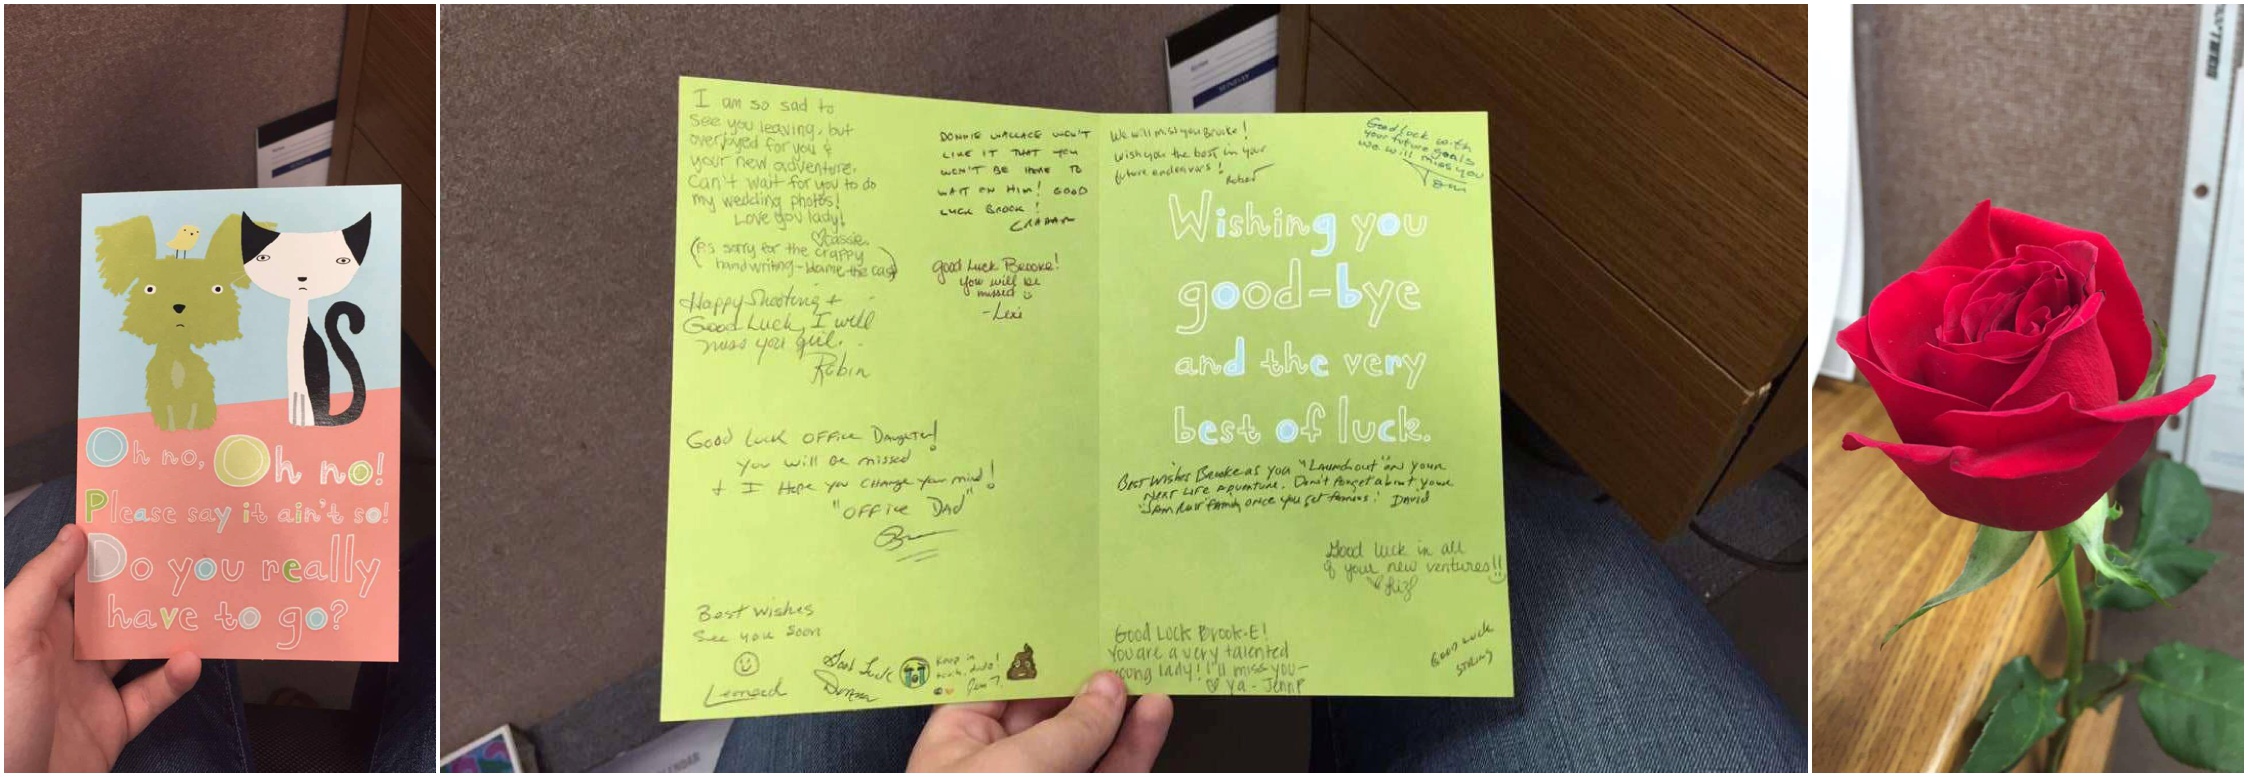 Oh no, Oh no!
Please say it ain't so!
Do you really
have to go?
I am so sad to
see you leaving, but
overjoyed for you &
your new adventure.
Can't wait for you to do
my wedding photos!
Love you lady!
♡Cassie
(PS sorry for the crappy
handwriting - blame the cast)
Happy Shooting +
Good Luck, I will
miss you girl.
Robin
Good Luck Office Daughter!
You will be missed
+ I Hope you change your mind!
"Office Dad"
Best Wishes
See you soon
Leonard
Good Luck
Donna
Keep in
touch,
Jen T.
DONNIE WALLACE WON'T
LIKE IT THAT YOU
WON'T BE HERE TO
WAIT ON HIM! GOOD
LUCK BROOK!
GRAHAM
Good Luck Brooke!
you will be
missed
-Lexi
We will miss you Brooke!
Wish you the best in your
future endeavors!
Robert
Good luck with
your future goals
we will miss you
Wishing you
good-bye
and the very
best of luck.
Best Wishes Brooke as you "Launch out" on your
next life adventure. Don't forget about your
family once you get famous! David
Good luck in all
of your new ventures!!
♡ Liz
Good Luck Brook-E!
You are a very talented
young lady! I'll miss you-
♡ ya - Jenn P
Good Luck